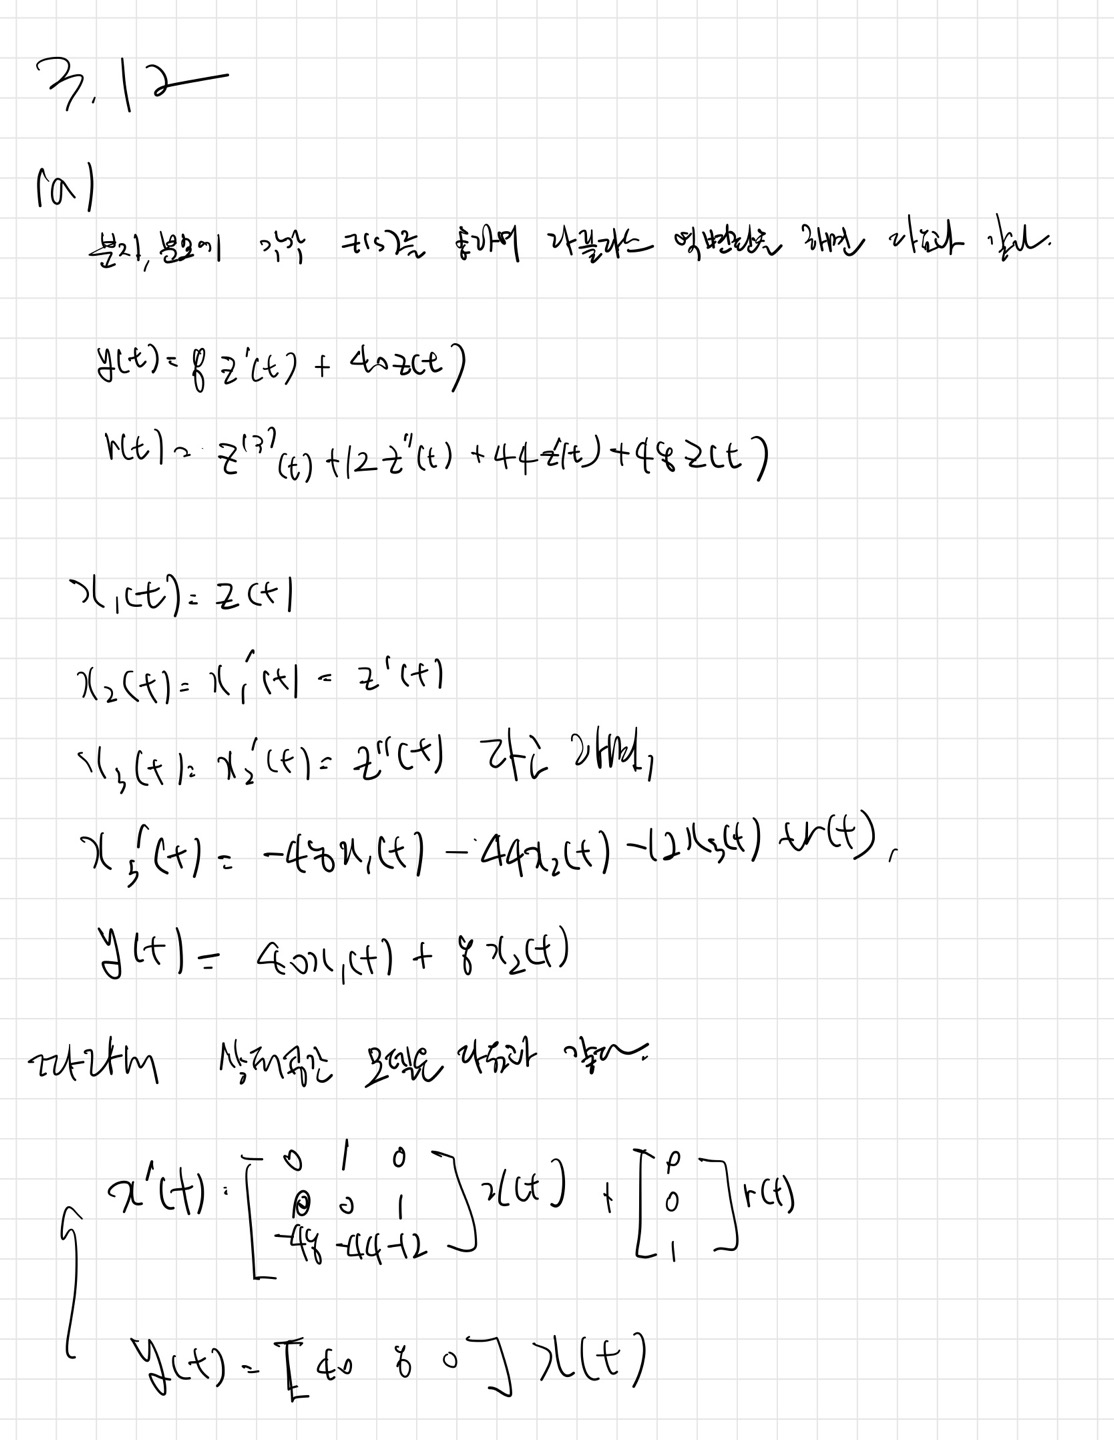 3.12
(a)
분자, 분모에 각각 z(s)를 곱하여 라플라스 역변환을 하면 다음과 같다.
y(t) = 8 z'(t) + 40z(t)
r(t) = z⁽³⁾(t) + 12 z''(t) + 44 z'(t) + 48 z(t)
x₁(t) = z(t)
x₂(t) = x₁'(t) = z'(t)
x₃(t) = x₂'(t) = z''(t) 라고 하면,
x₃'(t) = -48x₁(t) - 44x₂(t) - 12x₃(t) + r(t),
y(t) = 40x₁(t) + 8x₂(t)
따라서 상태공간 모델은 다음과 같다.
x'(t) = [0 1 0
0 0 1
-48 -44 -12] x(t) + [0
0
1] r(t)
y(t) = [40 8 0] x(t)